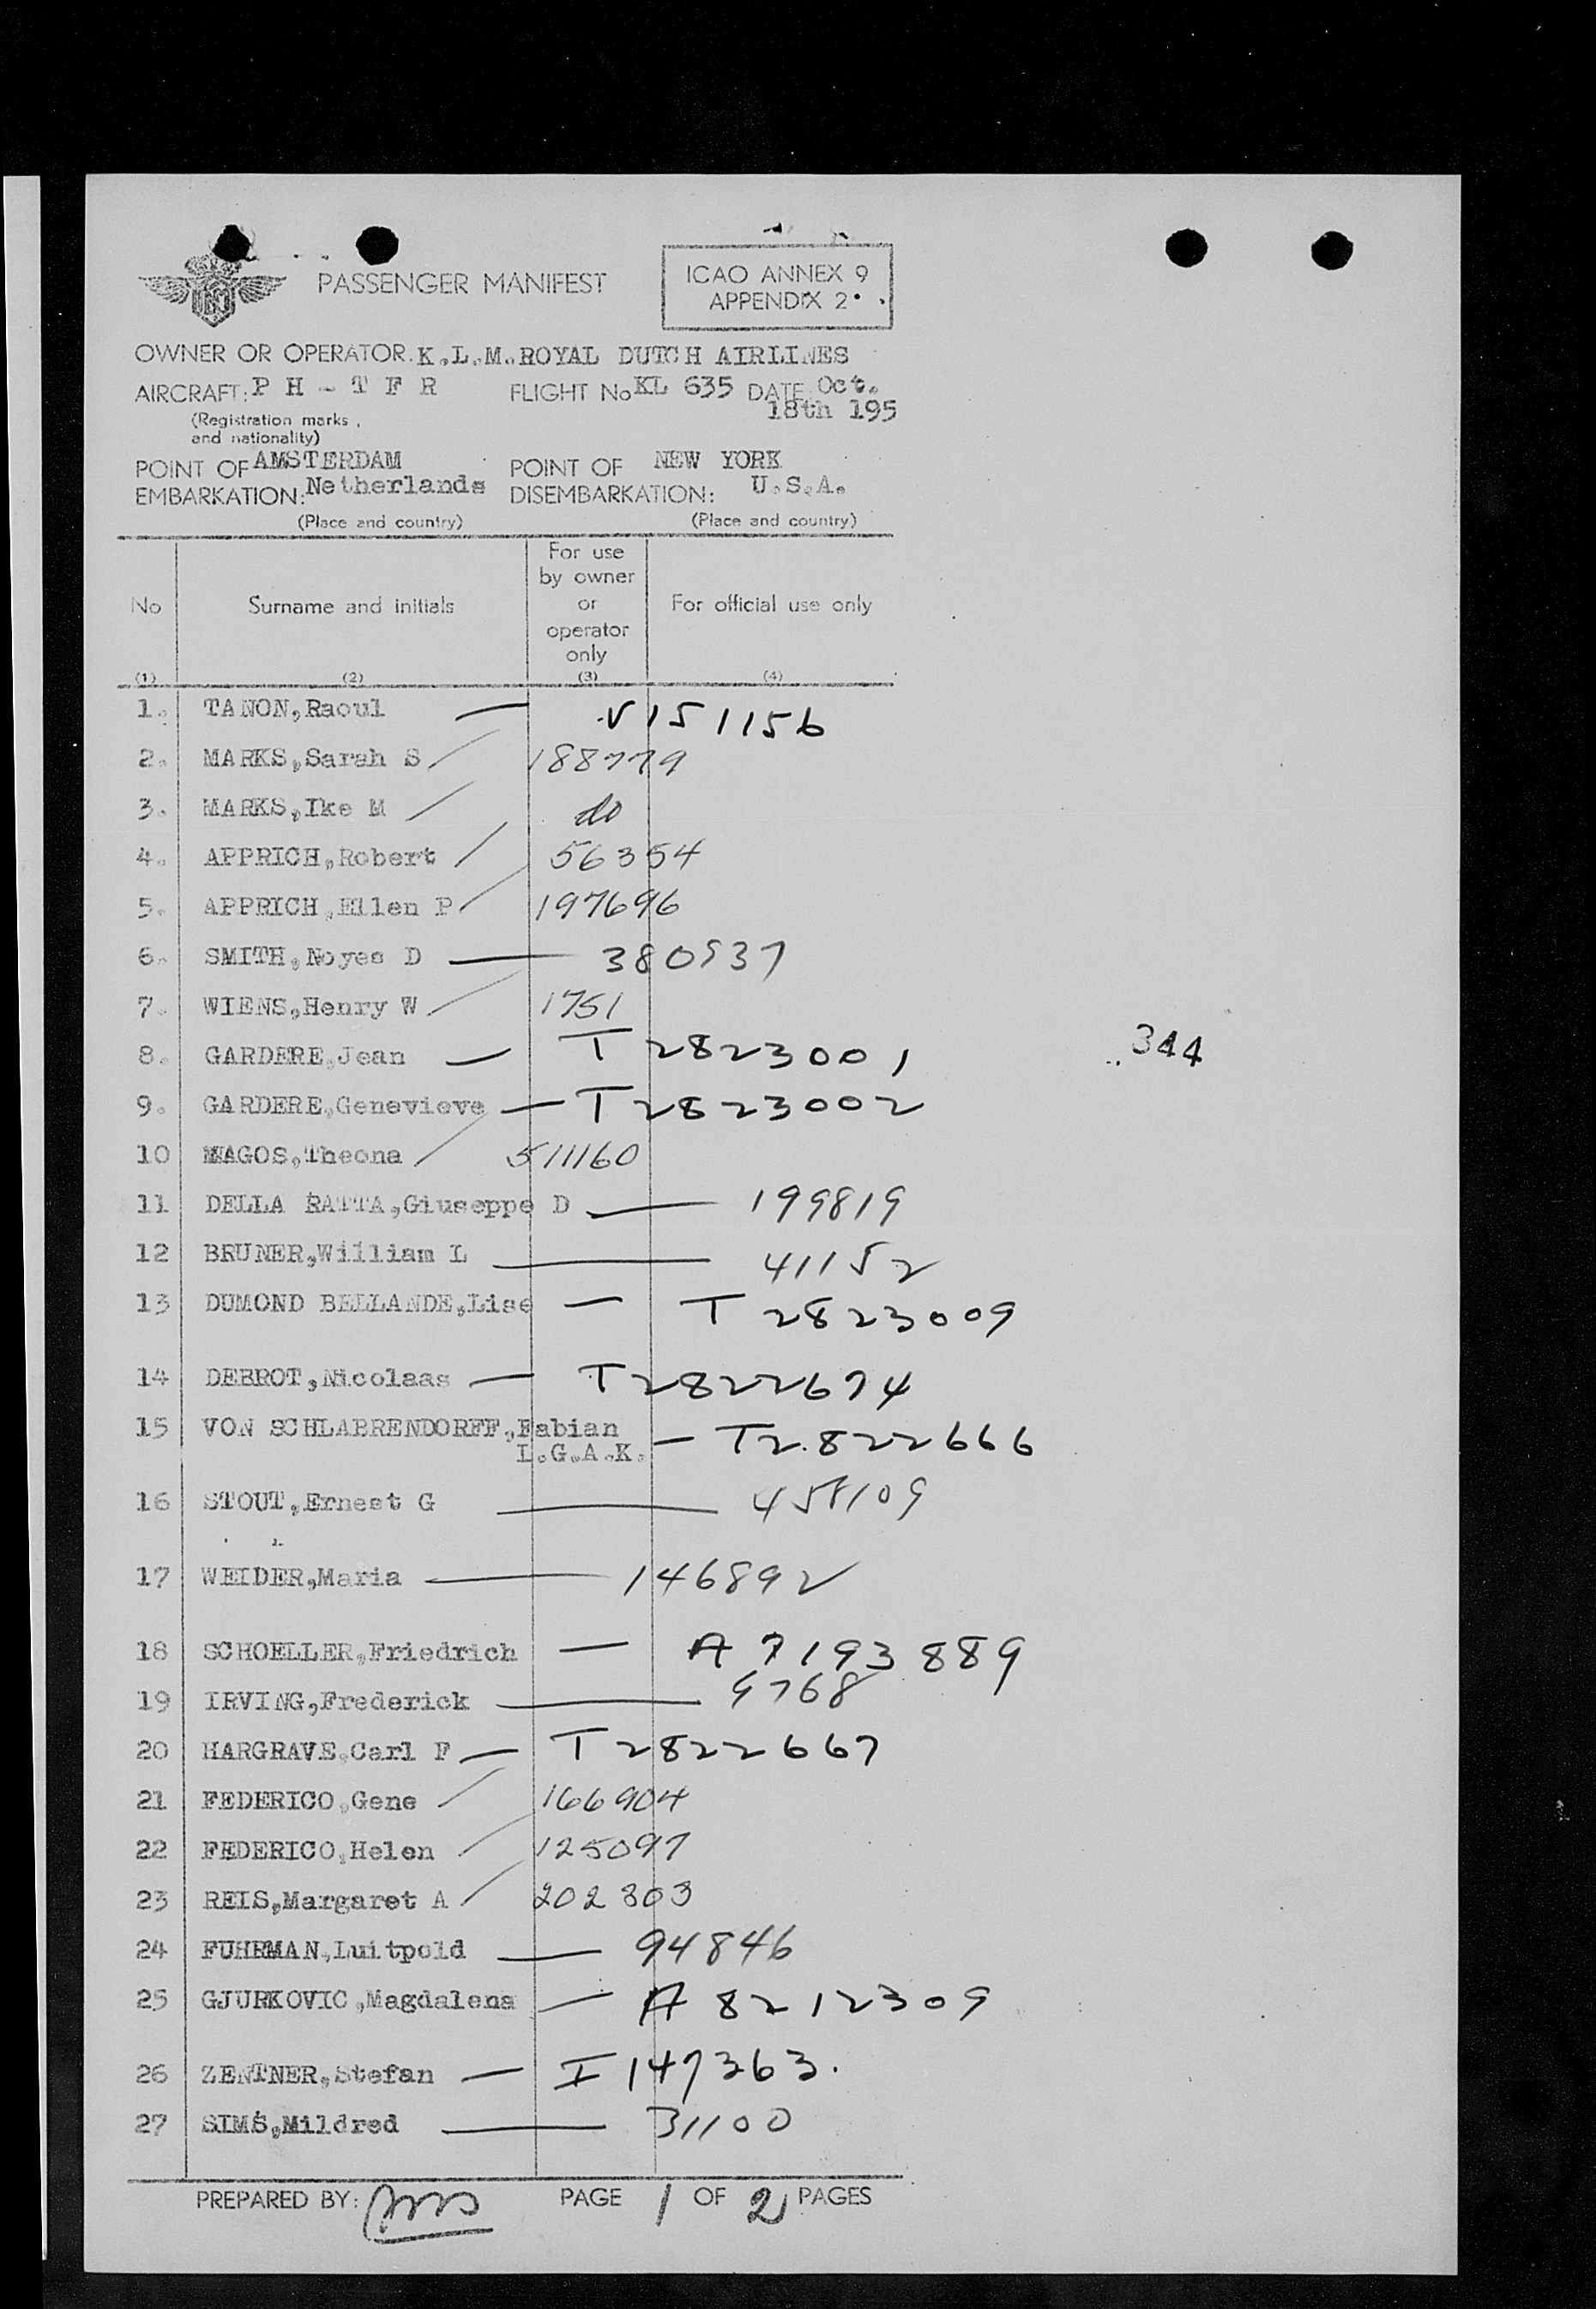 PASSENGER MANIFEST
ICAO ANNEX 9
APPENDIX 2
OWNER OR OPERATOR. K.L.M. ROYAL DUTCH AIRLINES
AIRCRAFT: P H - T F R FLIGHT No KL 635 DATE Oct.
18th 195
(Registration marks,
and nationality)
POINT OF AMSTERDAM POINT OF NEW YORK
EMBARKATION: Netherlands DISEMBARKATION: U.S.A.
(Place and country) (Place and country)
No Surname and initials For use by owner or operator only For official use only
(1) (2) (3) (4)
1. TANON,Raoul — V151156
2. MARKS,Sarah S / 188779
3. MARKS,Ike M / do
4. APPRICH,Robert / 56354
5. APPRICH,Ellen P / 197696
6. SMITH,Noyes D — 380537
7. WIENS,Henry W / 1751
8. GARDERE,Jean — T 2823001
344
9. GARDERE,Genevieve — T 2823002
10 MAGOS,Theona / 511160
11 DELLA RATTA,Giuseppe D — 199819
12 BRUNER,William L — 41152
13 DUMOND BELLANDE,Lise — T 2823009
14 DEBROT,Nicolaas — T2822674
15 VON SCHLABRENDORFF,Fabian
L.G.A.K. — T2822666
16 STOUT,Ernest G —
17 WEIDER,Maria — 146892
18 SCHOELLER,Friedrich — A 7193889
19 IRVING,Frederick — 9768
20 HARGRAVE,Carl F — T 2822667
21 FEDERICO,Gene / 166904
22 FEDERICO,Helen / 125097
23 REIS,Margaret A / 202303
24 FUHRMAN,Luitpold — 94846
25 GJURKOVIC,Magdalena — A 8212309
26 ZENTNER,Stefan — I 147363.
27 SIMS,Mildred — 31100
PREPARED BY: PAGE 1 OF 2 PAGES